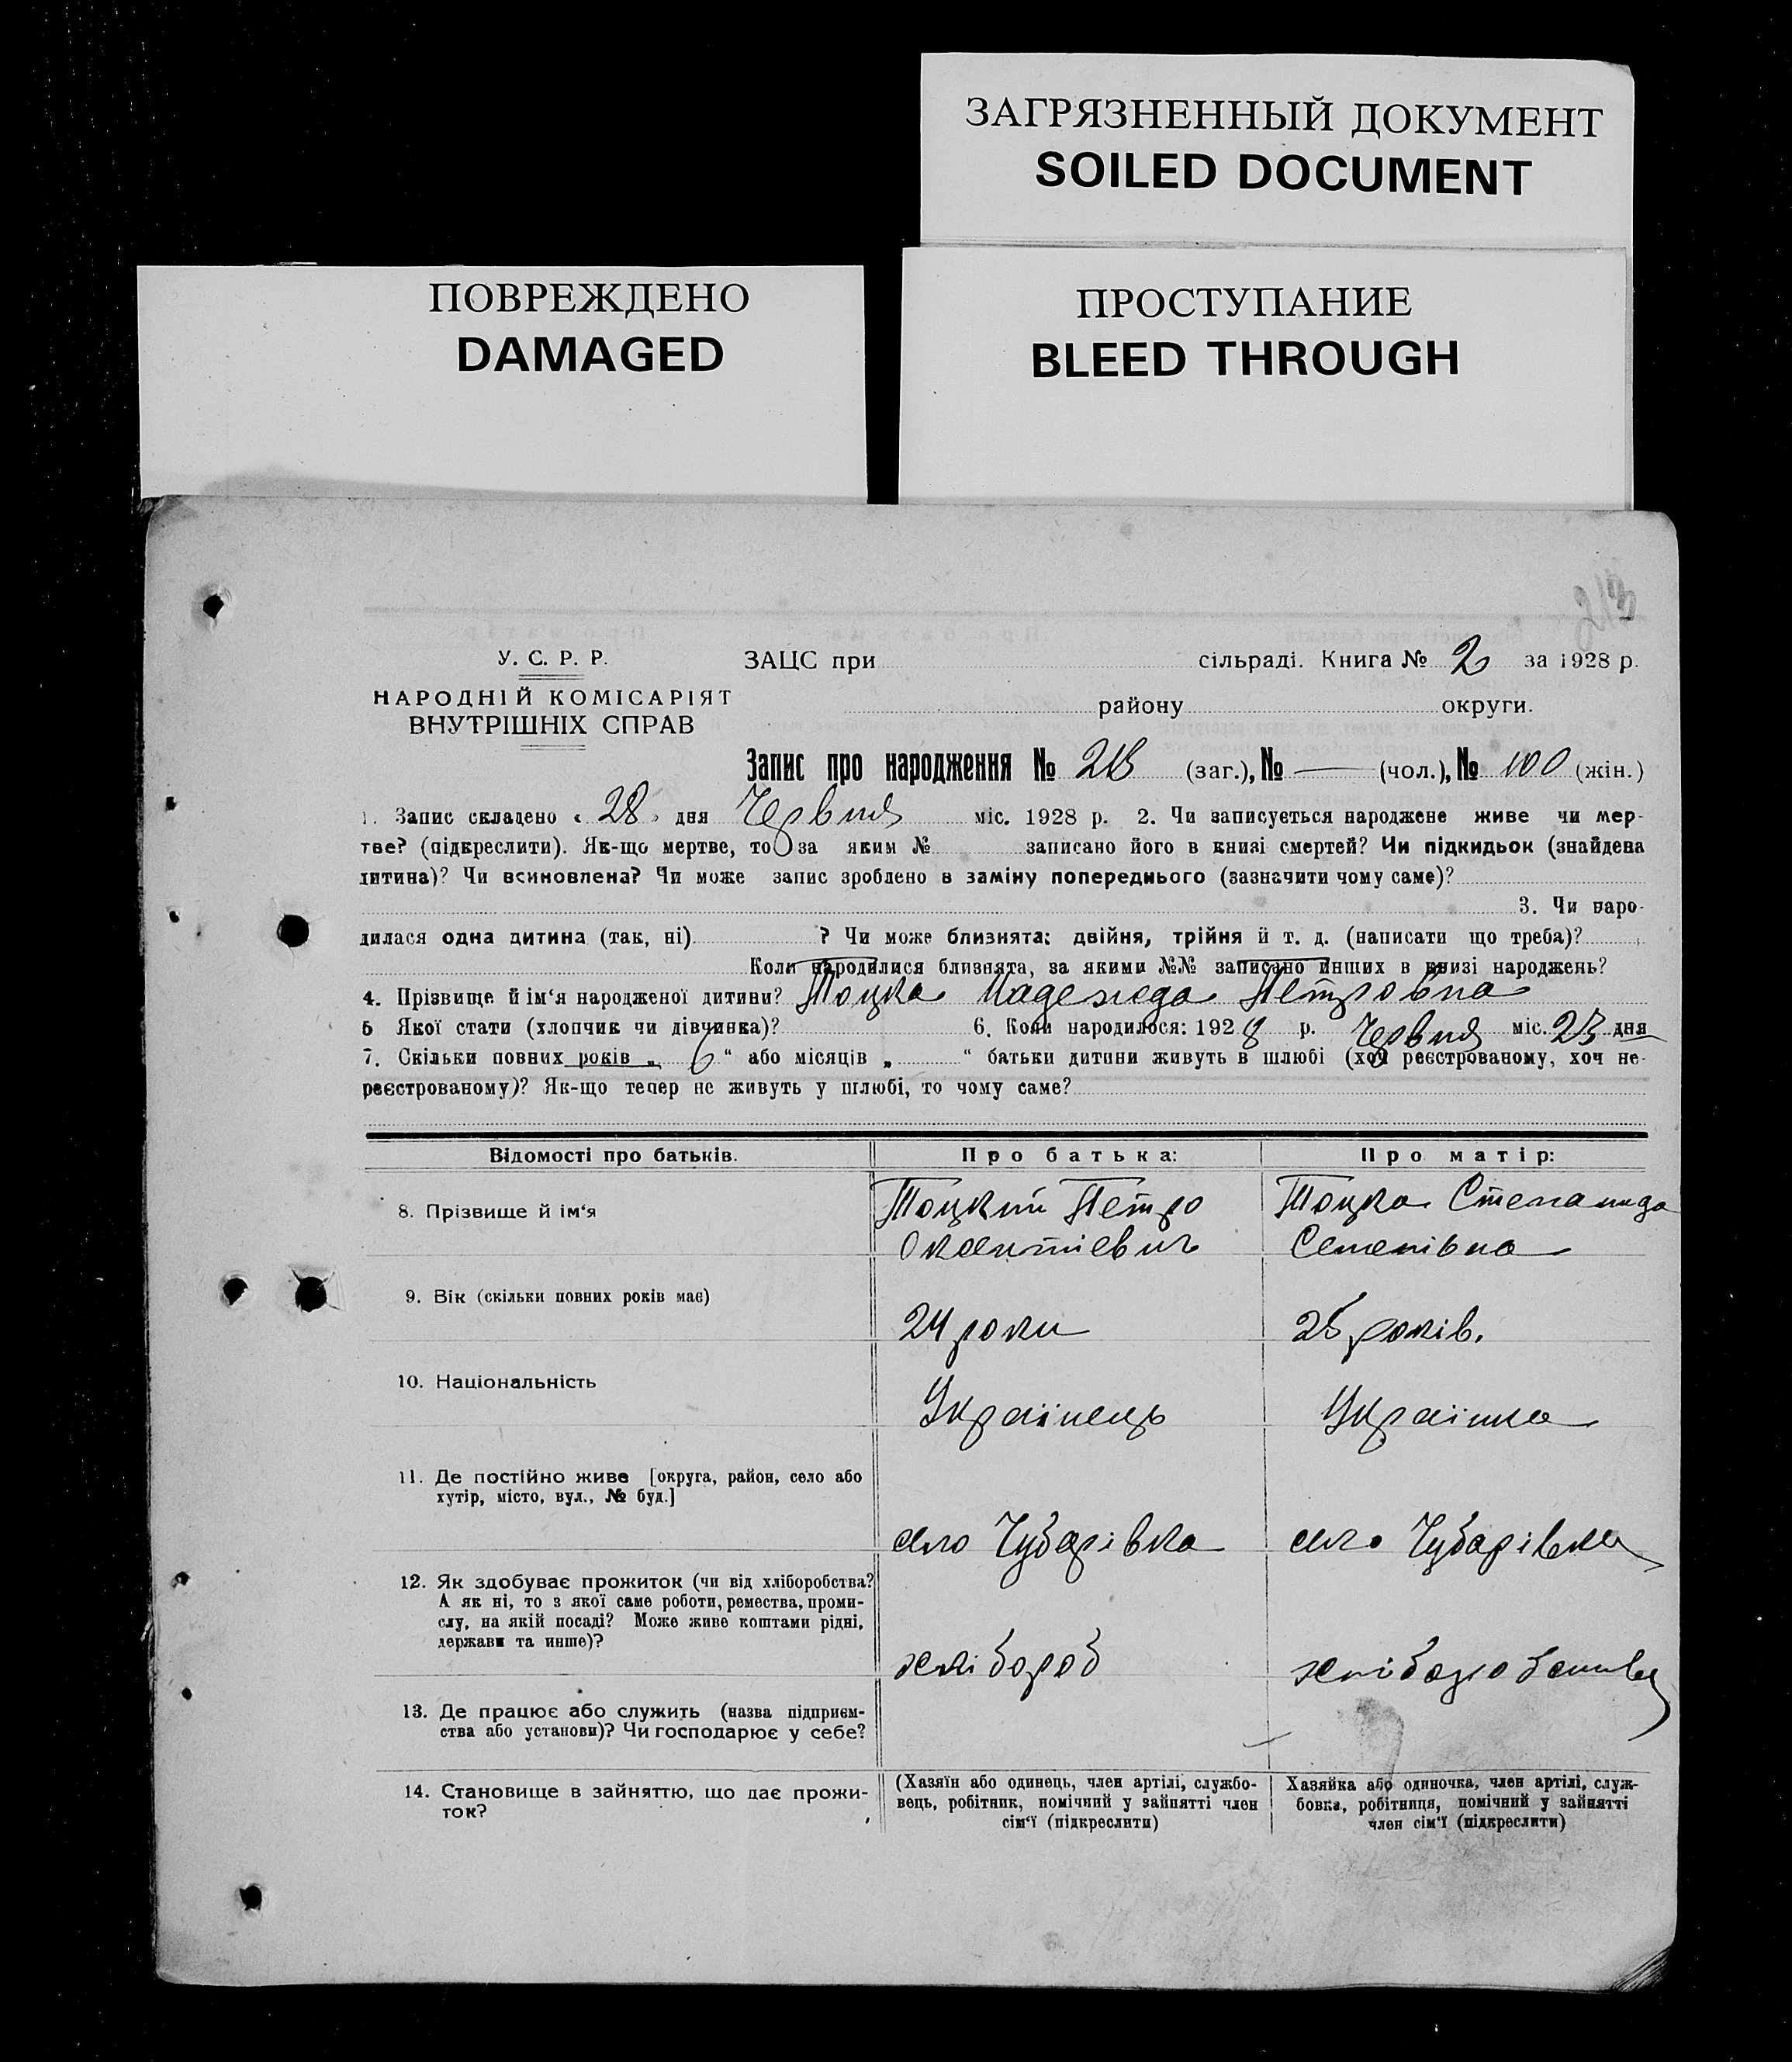 ЗАГРЯЗНЕННЫЙ ДОКУМЕНТ
SOILED DOCUMENT
ПОВРЕЖДЕНО
DAMAGED
ПРОСТУПАНИЕ
BLEED THROUGH
213
У. С. Р. Р.
НАРОДНІЙ КОМІСАРІЯТ
ВНУТРІШНІХ СПРАВ
ЗАЦС при сільраді. Книга № 2 за 1928 р.
району округи.
Запис про народження № 213 (заг.), № — (чол.), № 100 (жін.)
1. Запис складено « 28 » дня Червня міс. 1928 р. 2. Чи записується народжене живе чи мер-
тве? (підкреслити). Як-що мертве, то за яким № записано його в книзі смертей? Чи підкидьок (знайдена
дитина)? Чи всиновлена? Чи може запис зроблено в заміну попереднього (зазначити чому саме)?
3. Чи наро-
дилася одна дитина (так, ні) ? Чи може близнята: двійня, трійня й т. д. (написати що треба)?
Коли народилися близнята, за якими №№ записано инших в книзі народжень?
4. Прізвище й ім‘я народженої дитини? Тоцка Надежда Петровна
5 Якої стати (хлопчик чи дівчинка)? 6. Коли народилося: 1928 р. Червня міс. 23 дня
7. Скільки повних років „ 6 “ або місяців „ “ батьки дитини живуть в шлюбі (хоч реєстрованому, хоч не-
реєстрованому)? Як-що тепер не живуть у шлюбі, то чому саме?
Відомості про батьків. Про батька: Про матір:
8. Прізвище й ім‘я Тоцкий Петро Тоцка Степанида
Оксентіевич Семенівна
9. Вік (скільки повних років має)
24 роки 25 років.
10. Національність
Українець Українка
11. Де постійно живе [округа, район, село або
хутір, місто, вул., № буд.]
село Чубарівка село Чубарівка
12. Як здобуває прожиток (чи від хліборобства?
А як ні, то з якої саме роботи, ремества, проми-
слу, на якій посаді? Може живе коштами рідні,
держави та инше)?
хлібороб
13. Де працює або служить (назва підприєм-
ства або установи)? Чи господарює у себе?
14. Становище в зайняттю, що дає прожи-
ток?
(Хазяїн або одинець, член артілі, службо-
вець, робітник, помічний у зайнятті член
сім‘ї (підкреслити)
Хазяйка або одиночка, член артілі, служ-
бовка, робітниця, помічний у зайнятті
член сім‘ї (підкреслити)